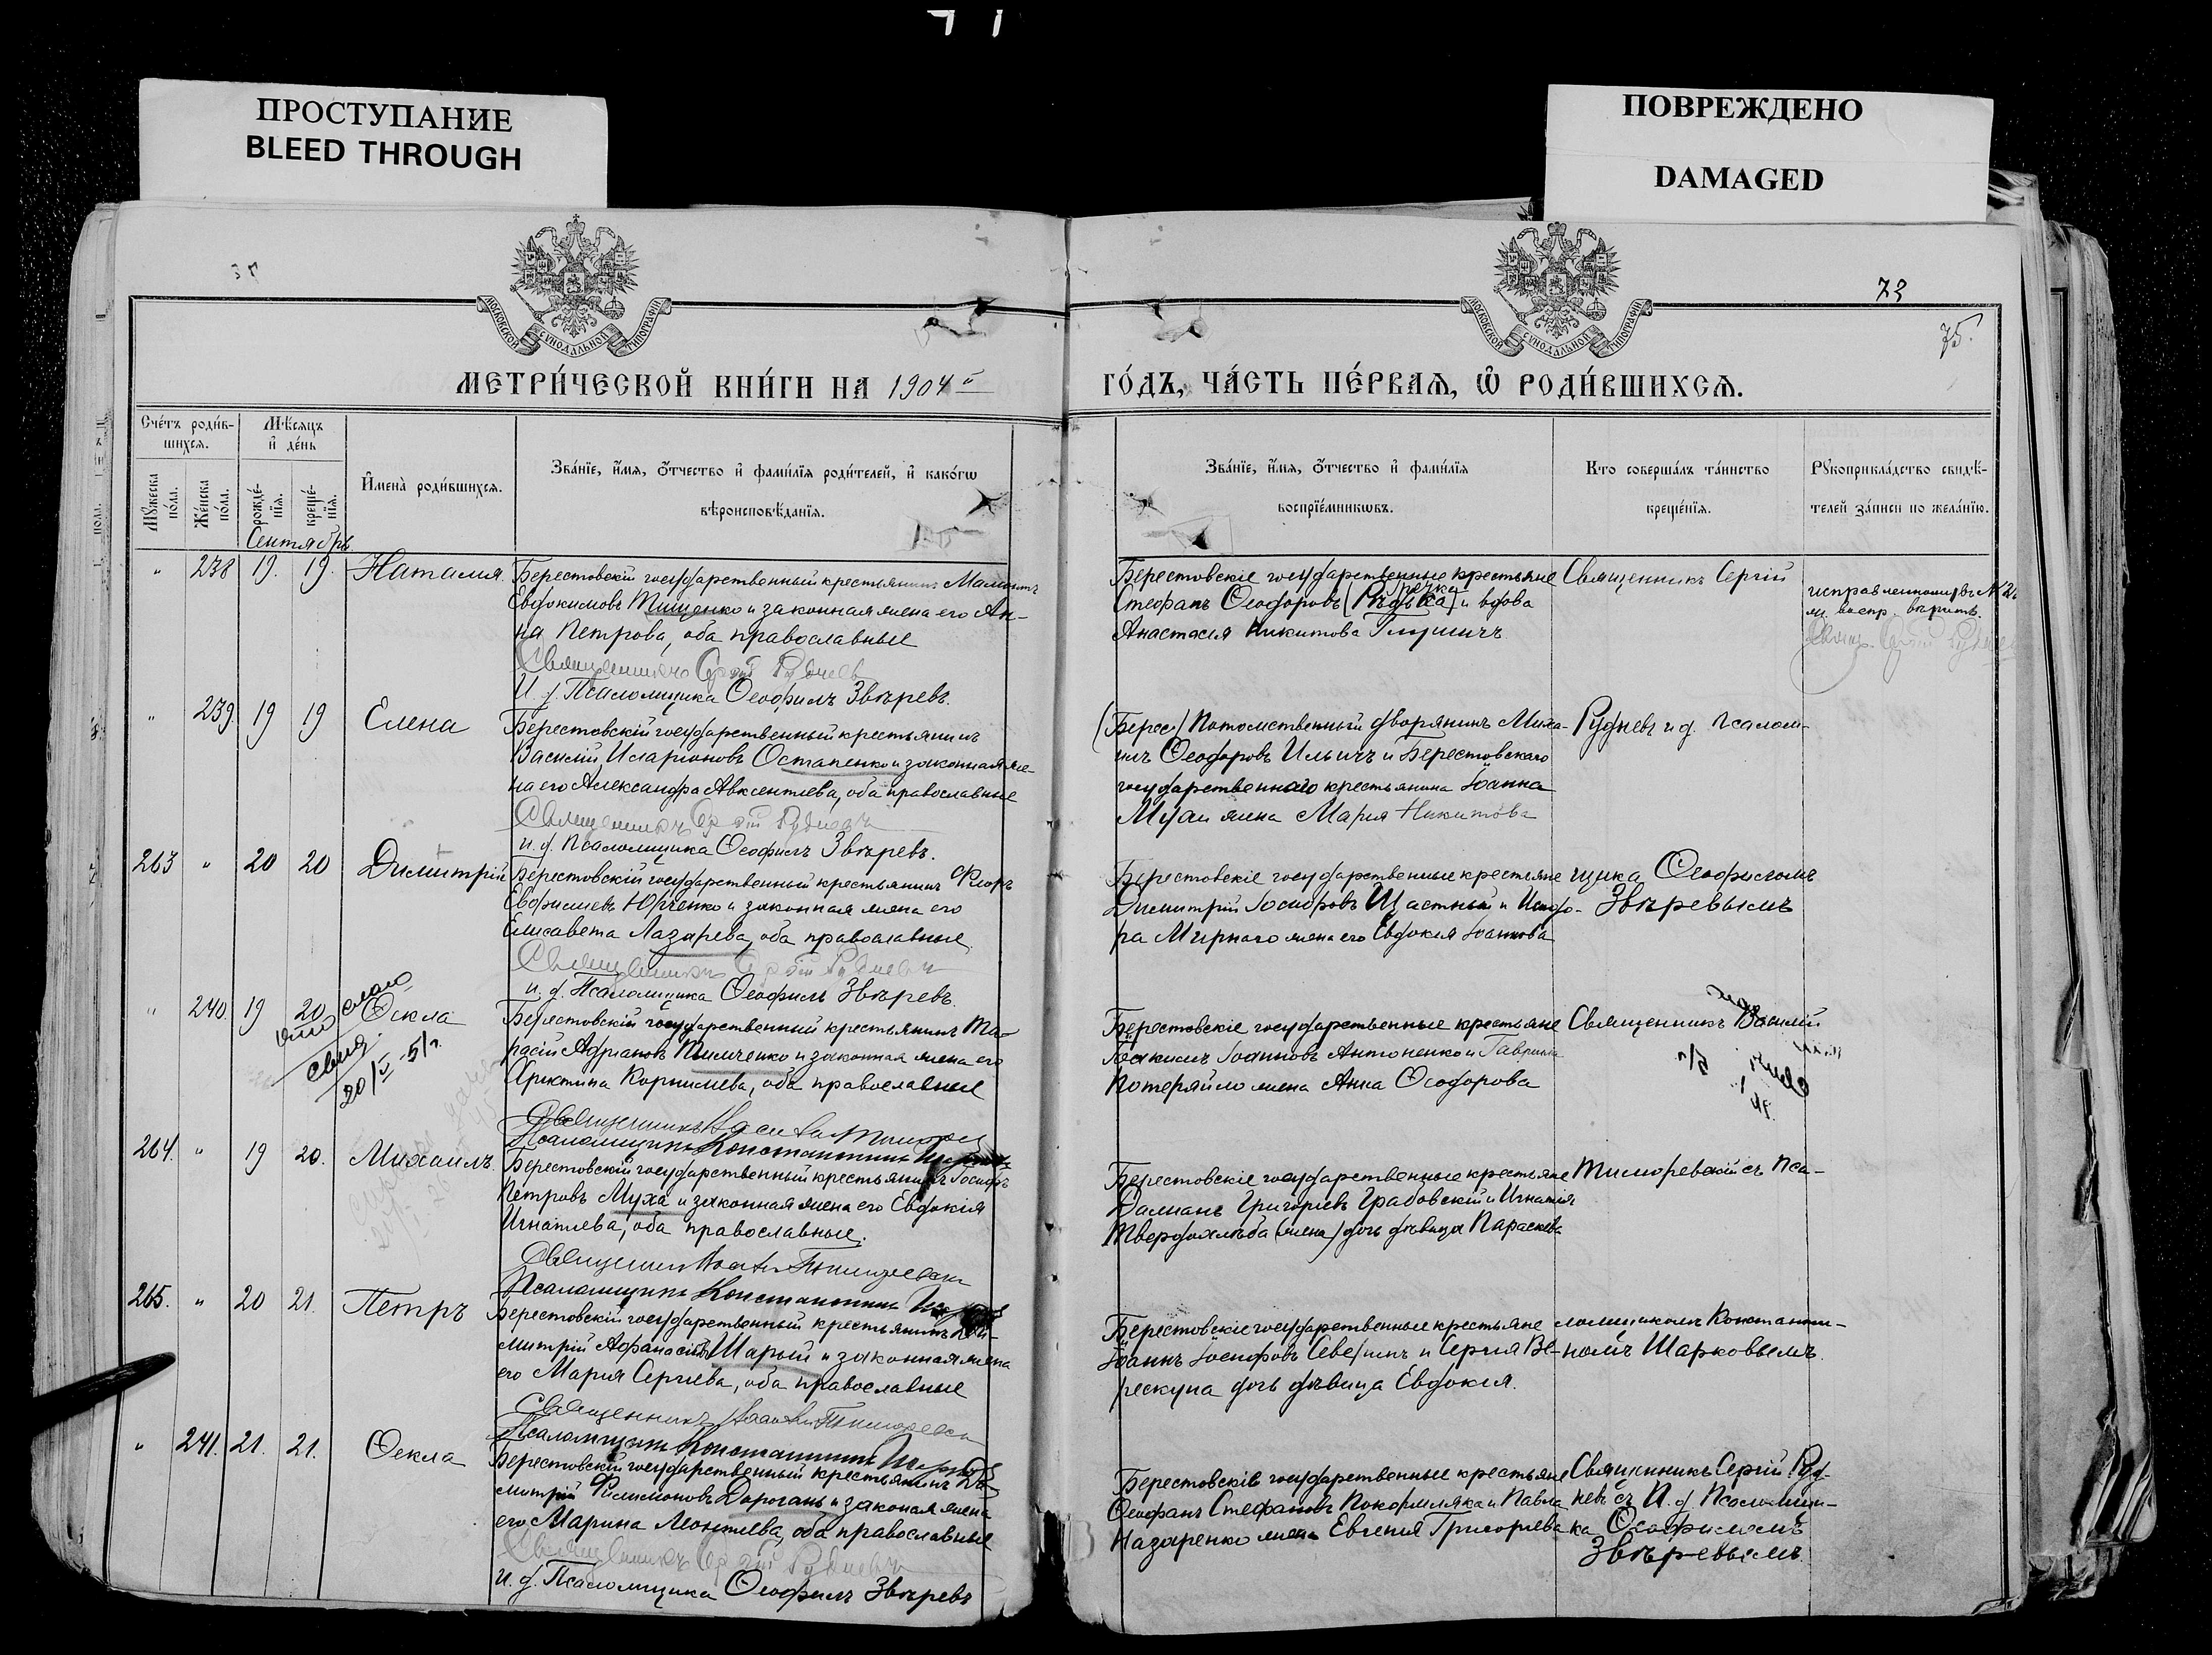 ПРОСТУПАНИЕ
BLEED THROUGH
ПОВРЕЖДЕНО
DAMAGED
МОСКОВСКОЙ СѴНОДАЛЬНОЙ ТИПОГРАФІИ
МОСКОВСКОЙ СѴНОДАЛЬНОЙ ТИПОГРАФІИ
73
75.
МЕТРИ́ЧЕСКОЙ КНИ́ГИ НА 1904й
ГО́ДЪ, ЧА́СТЬ ПЕ́РВАѦ, Ѽ РОДИ́ВШИХСѦ.
Сче́тъ роди́в-
шихсѧ.
Мѣ́сѧцъ
и҆ де́нь
Мꙋ́жеска по́ла.
Же́нска по́ла.
рожде́-
нїѧ.
креще́-
нїѧ.
И҆мена̀ роди́вшихсѧ.
Зва́нїе, и҆́мѧ, ѻ҆́тчество и҆ фами́лїѧ роди́телей, и҆ како́гѡ
вѣроисповѣ́данїѧ.
Зва́нїе, и҆́мѧ, ѻ҆́тчество и҆ фами́лїѧ
воспрїе́мникѡвъ.
Кто соверша́лъ та́инство
креще́нїѧ.
Рꙋкоприкла́дство свидѣ́-
телей за́писи по жела́нїю.
Сентябрь
" 238 19. 19. Наталия.
Берестовскій государственный крестьянинъ
Евдокимовъ Тищенко и законная жена его Ан-
на Петрова, оба православные
Священникъ Сергій Рудневъ
И. д. Псаломщика Ѳеофилъ Звѣревъ.
Берестовскіе государственные крестьяне
Стефанъ Ѳеодоровъ и вдова
Анастасія Никитова
Священникъ Сергій
" 239. 19 19 Елена
Берестовскій государственный крестьянинъ
Василій Иларіоновъ Остапенко и законная же-
на его Александра Авксентіева, оба православные
Священникъ Сергій Рудневъ
и. д. Псаломщика Ѳеофилъ Звѣревъ.
(Берес) Потомственный дворянинъ Миха-
илъ Ѳеодоровъ Ильичъ и Берестовскаго
государственнаго крестьянина Іоанна
жена Марія Никитова
Рудневъ и д. Псалом-
263 " 20 20 Димитрій
Берестовскій государственный крестьянинъ Флоръ
Юрченко и законная жена его
Елисавета Лазарева, оба православные.
Священникъ Сергій Рудневъ
и. д. Псаломщика Ѳеофилъ Звѣревъ.
Берестовскіе государственные крестьяне
Димитрій Іосифовъ Щастный и Исидо-
ра Мирнаго жена его Евдокія Іоаннова
щика Ѳеофиломъ
Звѣревымъ
" 240. 19 20 Ѳекла
Берестовскій государственный крестьянинъ Та-
расій Адріановъ Тимченко и законная жена его
Корнилиева, оба православные
Берестовскіе государственные крестьяне
Іоакимъ Іоанновъ Антоненко и Гавриила
Потеряйло жена Анна Ѳеодорова
Священникъ Василій
264. " 19 20. Михаилъ.
Берестовскій государственный крестьянинъ Іосифъ
Петровъ Муха и законная жена его Евдокія
Игнатіева, оба православные.
Берестовскіе государственные крестьяне
Даміанъ Григоріевъ Грабовскій и Игнатія
Твердохлѣба (жена) дочь дѣвица Параскева
Тиморевскій съ Пса-
265. " 20 21. Петръ
Берестовскій государственный крестьянинъ Ди-
митрій Аѳанасіевъ Шарый и законная жена
его Марія Сергіева, оба православные
Берестовскіе государственные крестьяне
Іоаннъ Іосифовъ Северинъ и Сергія Ве-
рескуна дочь дѣвица Евдокія.
ломщикомъ Константи-
номъ Шарковымъ.
" 241. 21. 21. Ѳекла
Берестовскій государственный крестьянинъ Ди-
митрій Филимоновъ Дорогань и законая жена
его Марина Леонтіева, оба православные
Священникъ Сергій Рудневъ
и. д. Псаломщика Ѳеофилъ Звѣревъ
Берестовскіе государственные крестьяне
Ѳеофанъ Стефановъ Покормляка и Павла
Назаренко жена Евгенія Григоріева
Священникъ Сергій Руд-
невъ съ И. д. Псаломщи-
ка Ѳеофиломъ
Звѣревымъ.